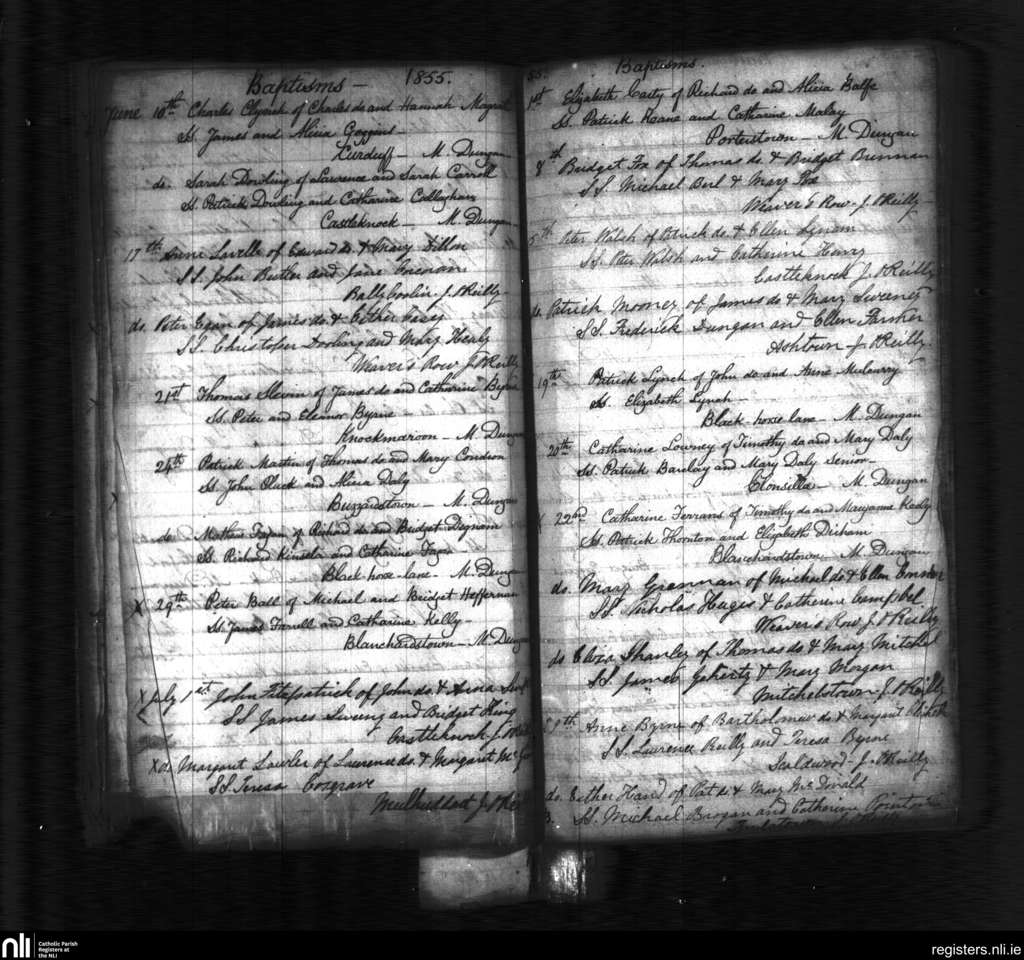 Baptisms — 1855.
June 10th Charles of Charles do and Hannah
Ss. James and Alicia Goggins
M. Dungan
do. Sarah Dowling of Lawrence and Sarah Carroll
Ss. Patrick Dowling and Catharine Callaghan
Castleknock — M. Dungan
17th Anne Lavelle of Edward do. & Mary Dillon
SS. John Butler and Jane
J. O'Reilly
do. Peter Egan of James do & Esther
SS. Christopher Dowling and Mary Healy
Weaver's Row J. O'Reilly
21st Thomas Slevin of James do and Catharine Byrne
Ss. Peter and Eleanor Byrne —
Knockmaroon — M. Dungan
24th Patrick Martin of Thomas do and Mary Condron
Ss. John and Alicia Daly
Buzzardstown — M. Dungan
do. of Richard do and Bridget Dignam
Ss. Richard Kinsela and Catharine
Black-horse-lane — M. Dungan
X 29th Peter Ball of Michael and Bridget Heffernan
Ss. James Farrell and Catharine Kelly —
Blanchardstown — M. Dungan
X July 1st John Fitzpatrick of John do. &
SS James and Bridget King
Castleknock J.
X do. Margaret Lawler of Lawrence do. & Margaret
SS. Teresa Cosgrave
Mulhuddart J. O'Re
55. Baptisms.
1st Elizabeth Carty of Richard do and Alicia Balfe
Ss. Patrick Keane and Catharine
Porterstown — M. Dungan
8th Bridget Fox of Thomas do. & Bridget Brennan
SS. Michael & Mary Fox
Weaver's Row — J. O'Reilly
Peter Walsh of Patrick do. & Ellen Lynam
SS. Peter Walsh and Catherine Henry
Castleknock J. O'Reilly
do. Patrick Mooney of James do & Mary Sweeney
SS. Frederick Dungan and Ellen Farmer
Ashtown — J. O'Reilly
19th Patrick Lynch of John do and Anne
Ss. Elizabeth Lynch —
Black-horse lane — M. Dungan
20th Catharine Lowney of Timothy do and Mary Daly
Ss. Patrick Barclay and Mary Daly Senior —
Clonsilla — M. Dungan
X 22nd Catharine of Timothy do and Maryanne
Ss. Patrick Thornton and Elizabeth
Blanchardstown M. Dungan
do. Mary Grennan of Michael do & Ellen
SS. Nicholas & Catherine Campbel
Weaver's Row J. O'Reilly
do Eliza Shanley of Thomas do & Mary Mitchel
SS. James & Mary Morgan
Mitchelstown J. O'Reilly
Anne Byrne of Bartholomew do & Margaret
SS. Lawrence Reilly and Teresa Byrne
Scaldwood — J. O'Reilly
do. Esther of Pat do & Mary McDonald
SS. Michael Brogan and Catherine
nli Catholic Parish
Registers at
the NLI
registers.nli.ie